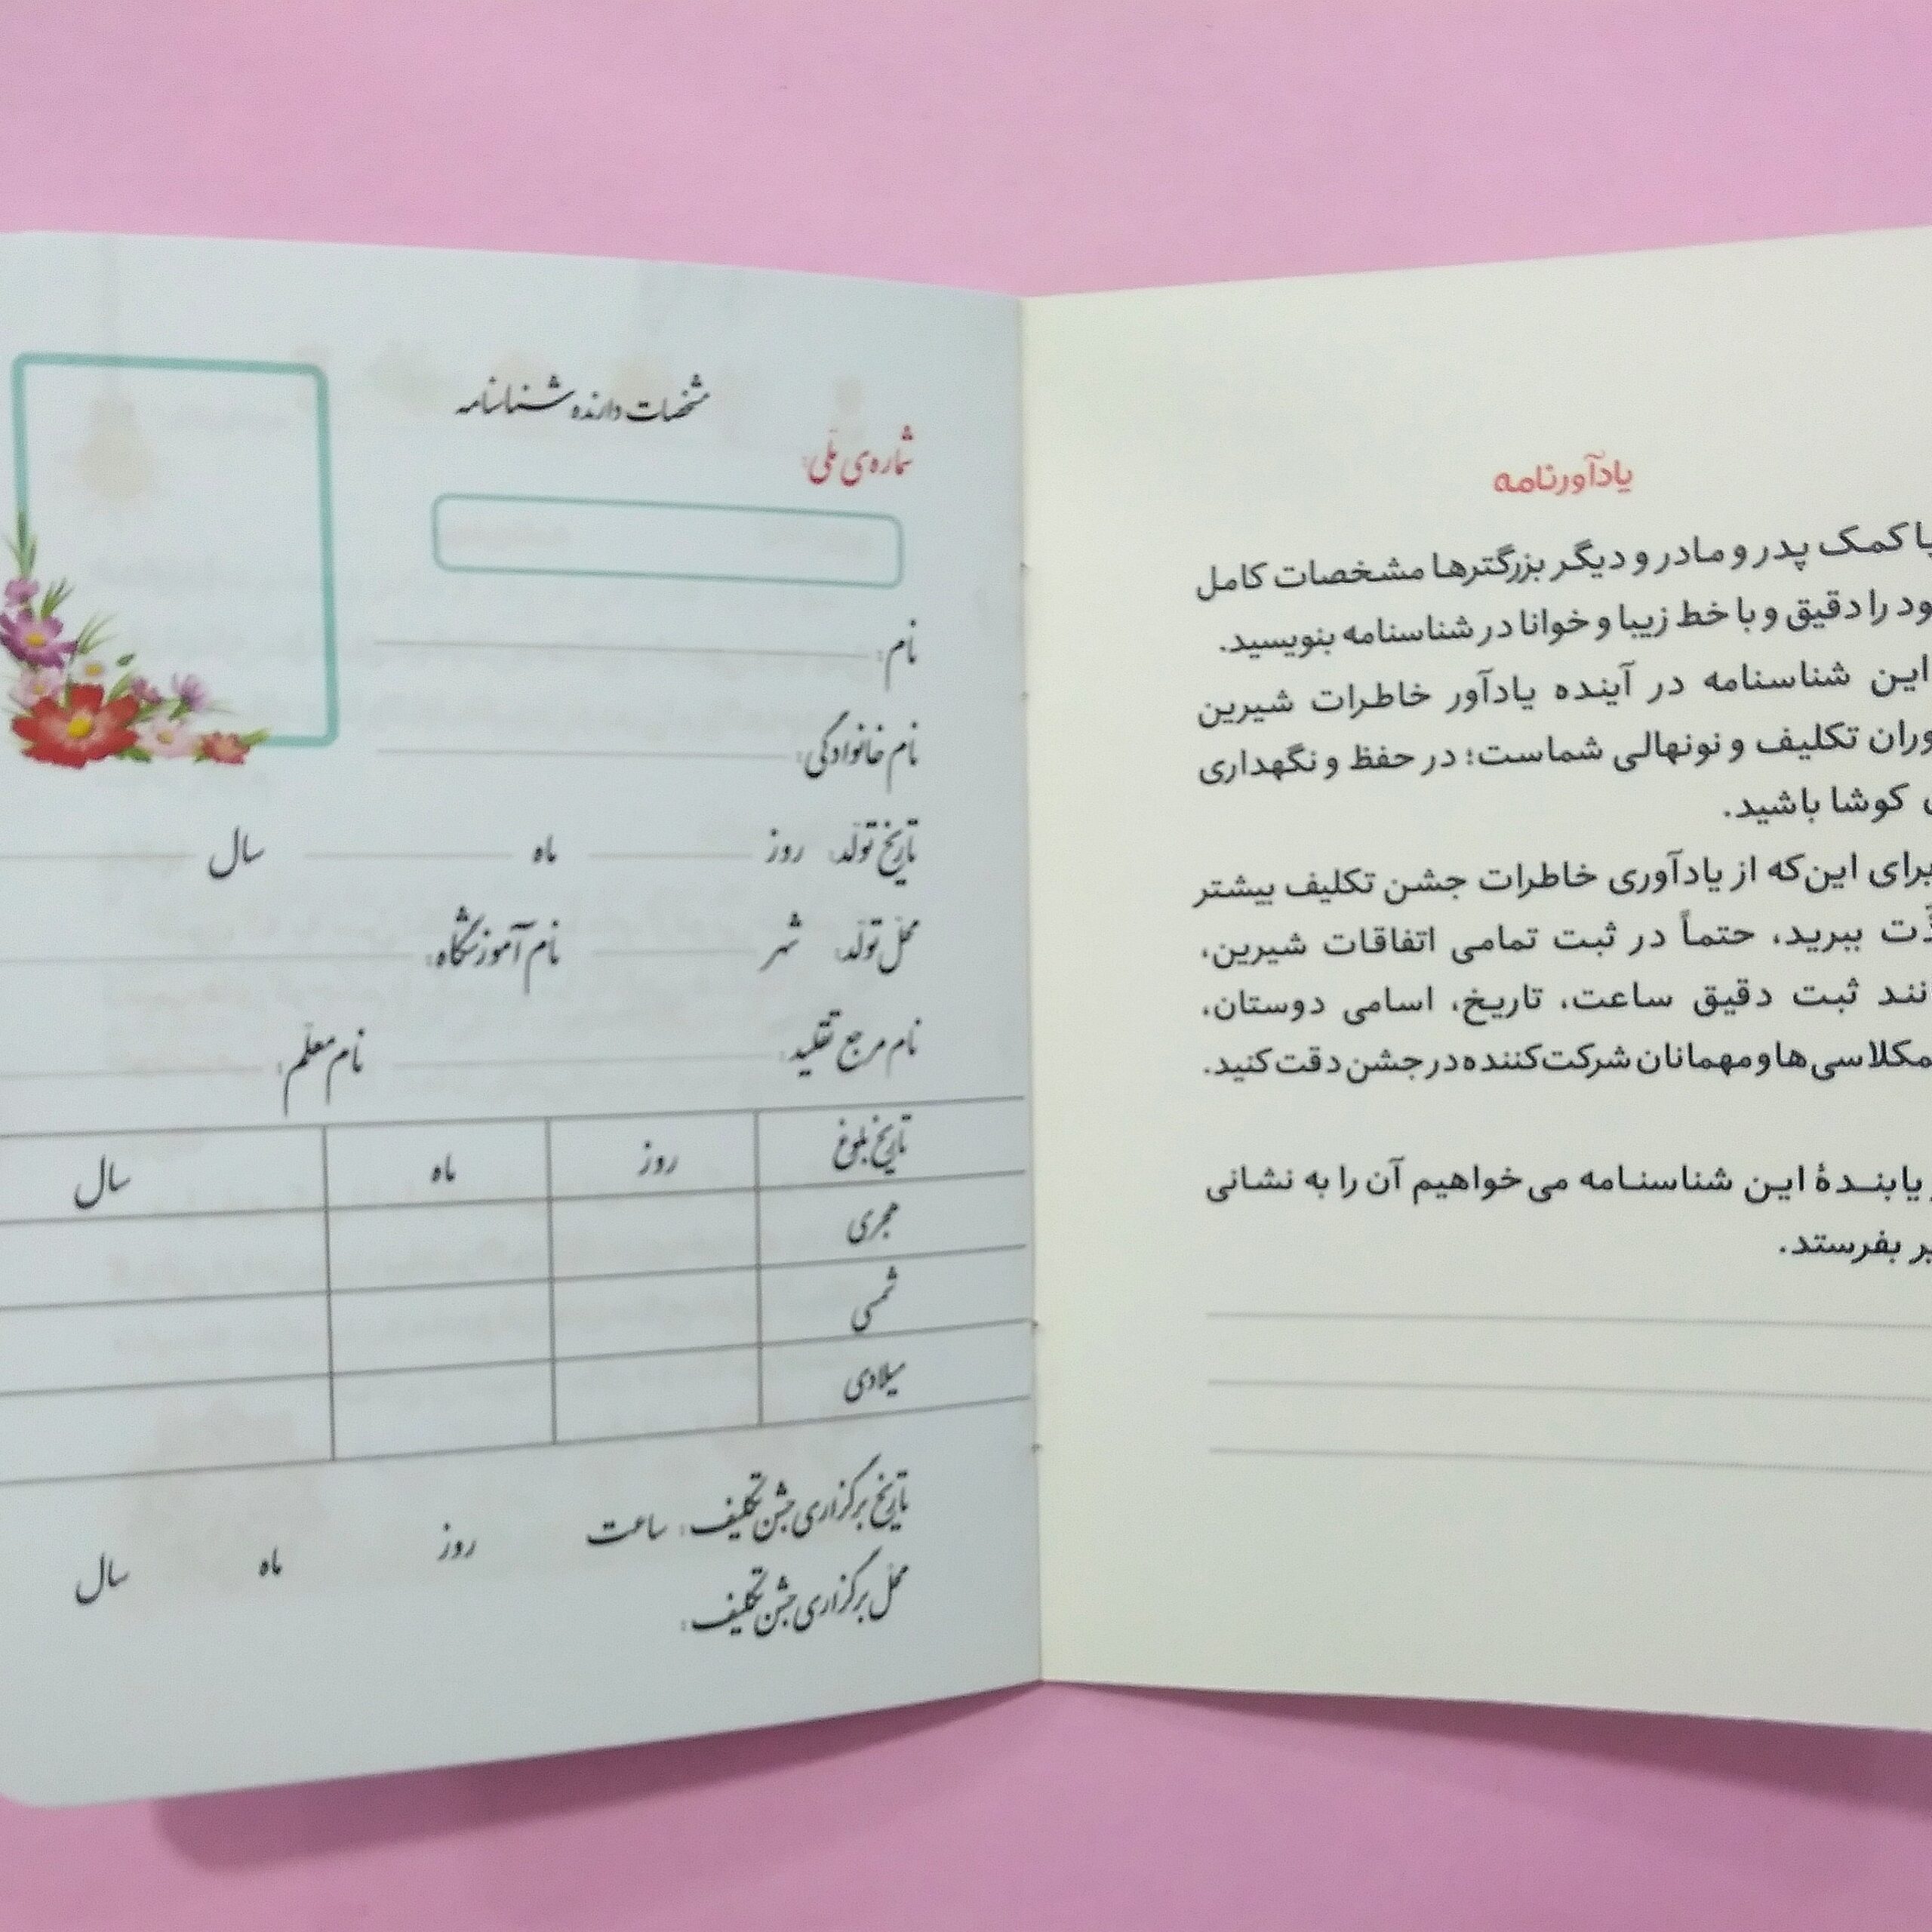 یادآورنامه
با کمک پدر و مادر و دیگر بزرگترها مشخصات کامل
را دقیق و با خط زیبا و خوانا در شناسنامه بنویسید.
این شناسنامه در آینده یادآور خاطرات شیرین
تکلیف و نونهالی شماست؛ در حفظ و نگهداری
کوشا باشید.
برای این‌که از یادآوری خاطرات جشن تکلیف بیشتر
ببرید، حتماً در ثبت تمامی اتفاقات شیرین،
ثبت دقیق ساعت، تاریخ، اسامی دوستان،
و مهمانان شرکت‌کننده در جشن دقت کنید.
یابندهٔ این شناسنامه می‌خواهیم آن را به نشانی
بفرستد.
مشخصات دارنده شناسنامه
شماره‌ی ملّی:
نام:
نام خانوادگی:
تاریخ تولّد: روز ماه سال
محلّ تولّد: شهر نام آموزشگاه:
نام مرجع تقلید: نام معلّم:
تاریخ بلوغ روز ماه سال
هجری
شمسی
میلادی
تاریخ برگزاری جشن تکلیف: ساعت روز ماه سال
محلّ برگزاری جشن تکلیف: